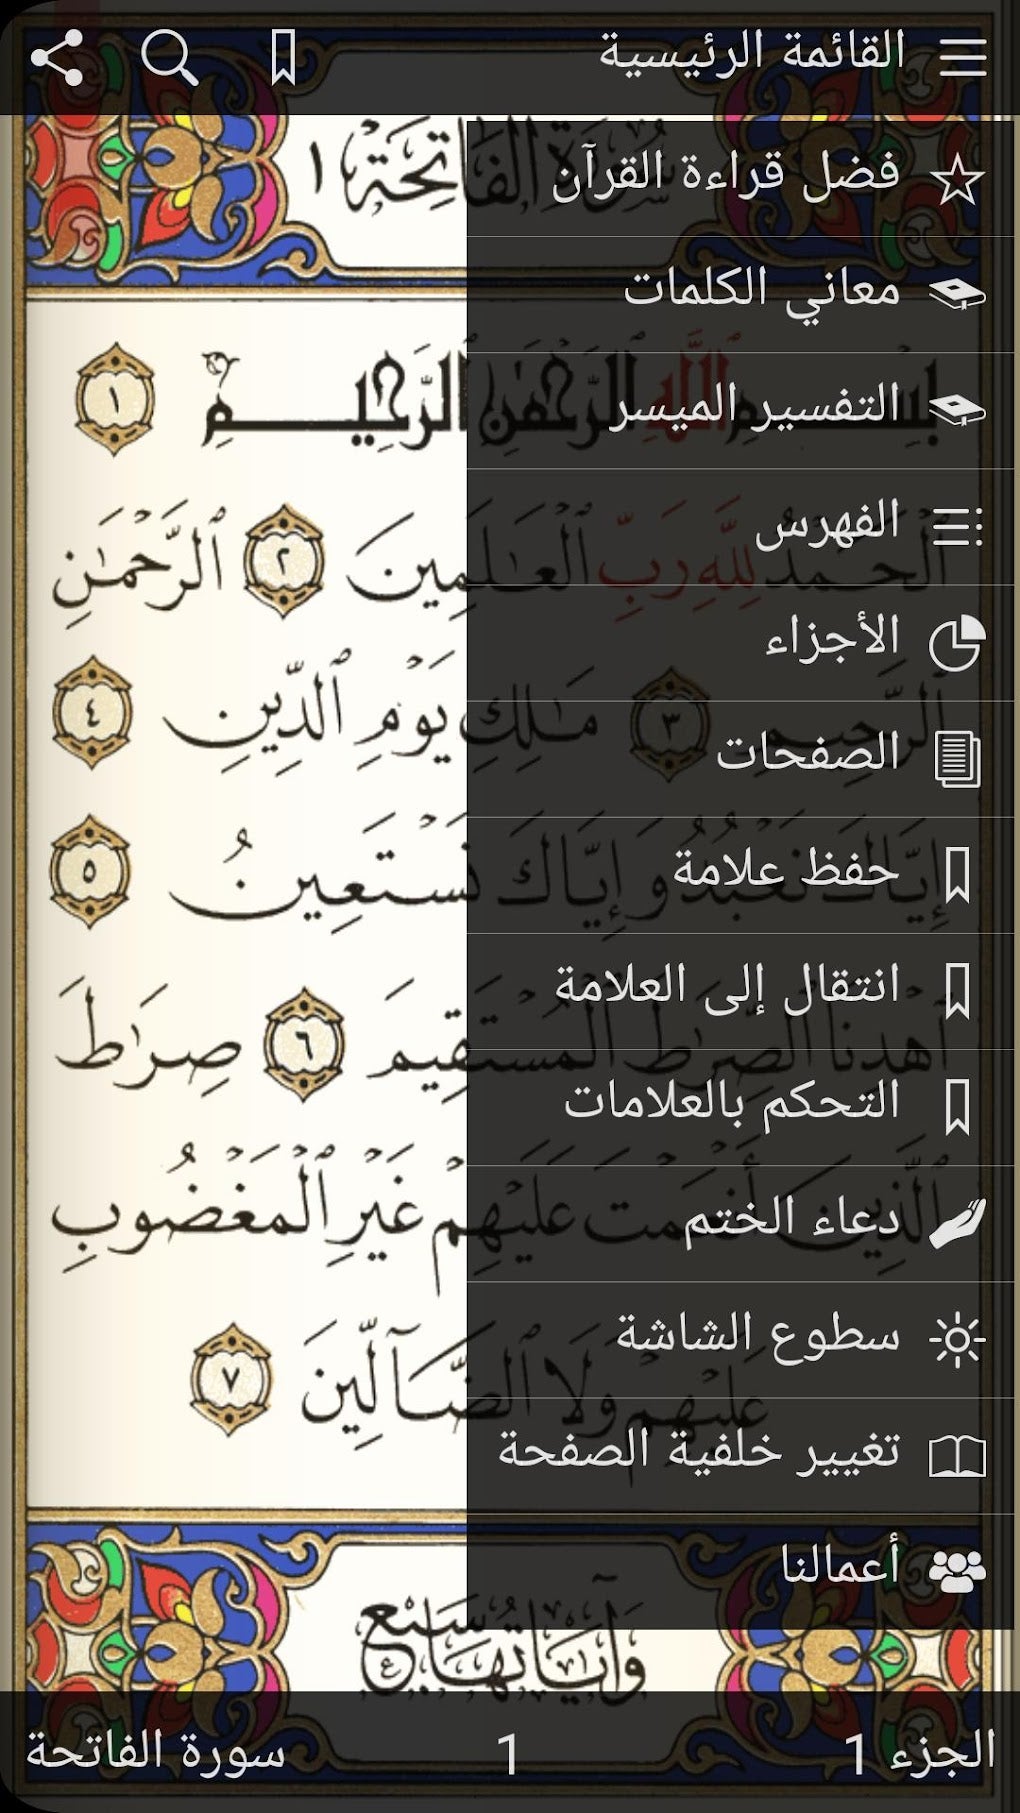 القائمة الرئيسية
سُورَةُ الفَاتِحَة ١
فضل قراءة القرآن
معاني الكلمات
التفسير الميسر
الفهرس
الأجزاء
الصفحات
حفظ علامة
انتقال إلى العلامة
التحكم بالعلامات
دعاء الختم
سطوع الشاشة
تغيير خلفية الصفحة
أعمالنا
بِسْمِ ٱللَّهِ ٱلرَّحْمَٰنِ ٱلرَّحِيمِ ١
ٱلْحَمْدُ لِلَّهِ رَبِّ ٱلْعَٰلَمِينَ ٢ ٱلرَّحْمَٰنِ
ٱلرَّحِيمِ ٣ مَٰلِكِ يَوْمِ ٱلدِّينِ ٤
إِيَّاكَ نَعْبُدُ وَإِيَّاكَ نَسْتَعِينُ ٥
ٱهْدِنَا ٱلصِّرَٰطَ ٱلْمُسْتَقِيمَ ٦ صِرَٰطَ
ٱلَّذِينَ أَنْعَمْتَ عَلَيْهِمْ غَيْرِ ٱلْمَغْضُوبِ
عَلَيْهِمْ وَلَا ٱلضَّآلِّينَ ٧
وَآيَاتُهَا سَبْع
الجزء 1
1
سورة الفاتحة